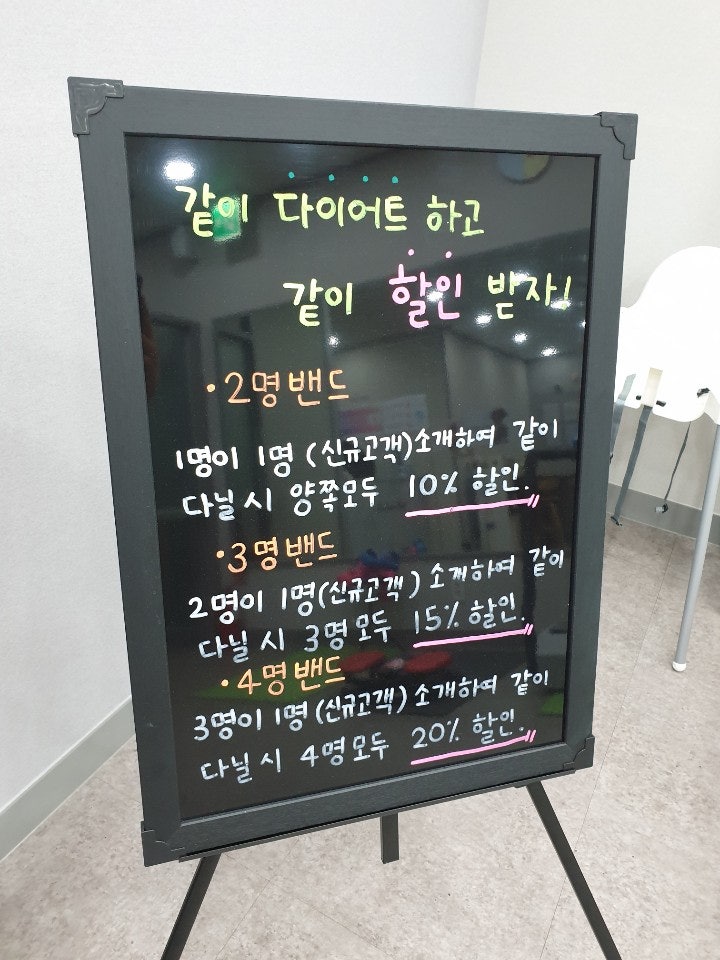 같이 다이어트 하고
같이 할인 받자!
·2명밴드
1명이 1명 (신규고객)소개하여 같이
다닐 시 양쪽모두 10% 할인.
·3명밴드
2명이 1명(신규고객) 소개하여 같이
다닐 시 3명모두 15% 할인.
·4명밴드
3명이 1명(신규고객) 소개하여 같이
다닐 시 4명모두 20% 할인.